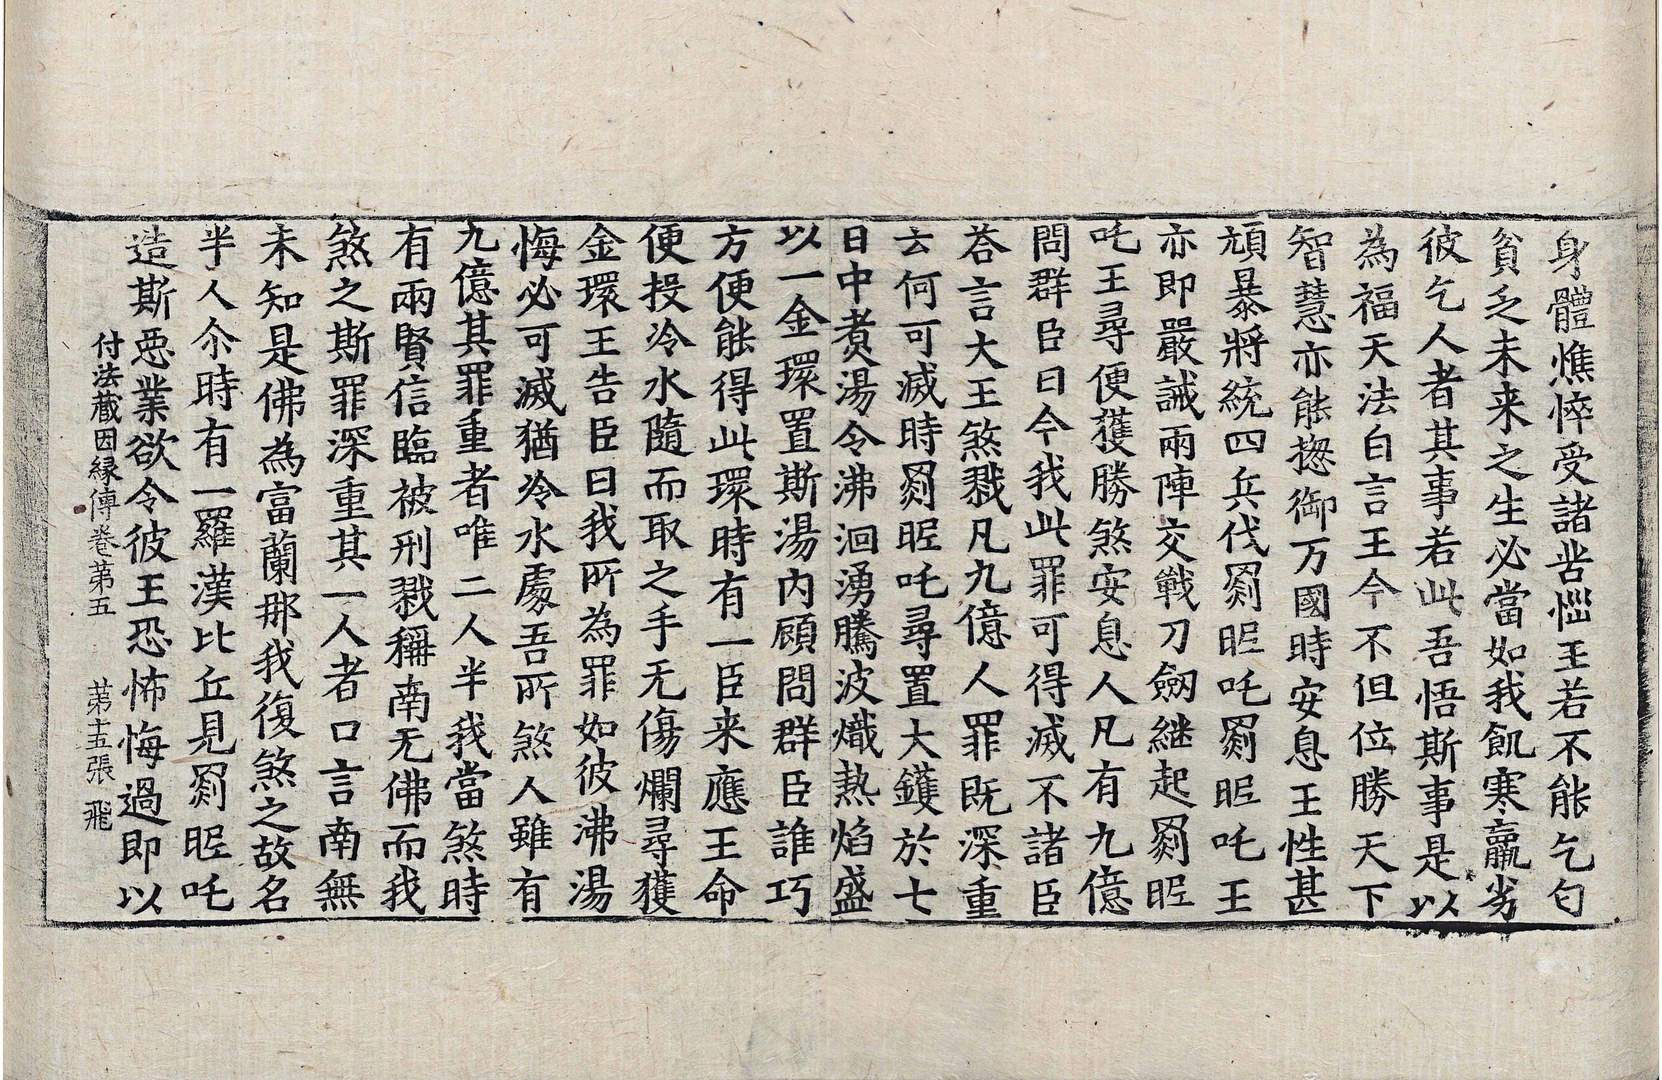 身體憔悴受諸苦惱王若不能乞匂
貧乏未来之生必當如我飢寒羸劣
彼乞人者其事若此吾悟斯事是以
為福天法白言王今不但位勝天下
智慧亦能揔御万國時安息王性甚
頑暴將統四兵伐罽昵吒罽昵吒王
亦即嚴誡兩陣交戰刀劒継起罽昵
吒王尋便獲勝煞安息人凡有九億
問群臣曰今我此罪可得滅不諸臣
荅言大王煞戮凡九億人罪既深重
云何可滅時罽昵吒尋置大鑊於七
日中煮湯令沸洄湧騰波熾熱焰盛
以一金環置斯湯內顧問群臣誰巧
方便能得此環時有一臣来應王命
便投冷水隨而取之手无傷爛尋獲
金環王告臣曰我所為罪如彼沸湯
悔必可滅猶冷水處吾所煞人雖有
九億其罪重者唯二人半我當煞時
有兩賢信臨被刑戮稱南无佛而我
煞之斯罪深重其一人者口言南無
未知是佛為富蘭那我復煞之故名
半人尒時有一羅漢比丘見罽昵吒
造斯惡業欲令彼王恐怖悔過即以
付法藏因縁傳卷第五 第十五張 飛